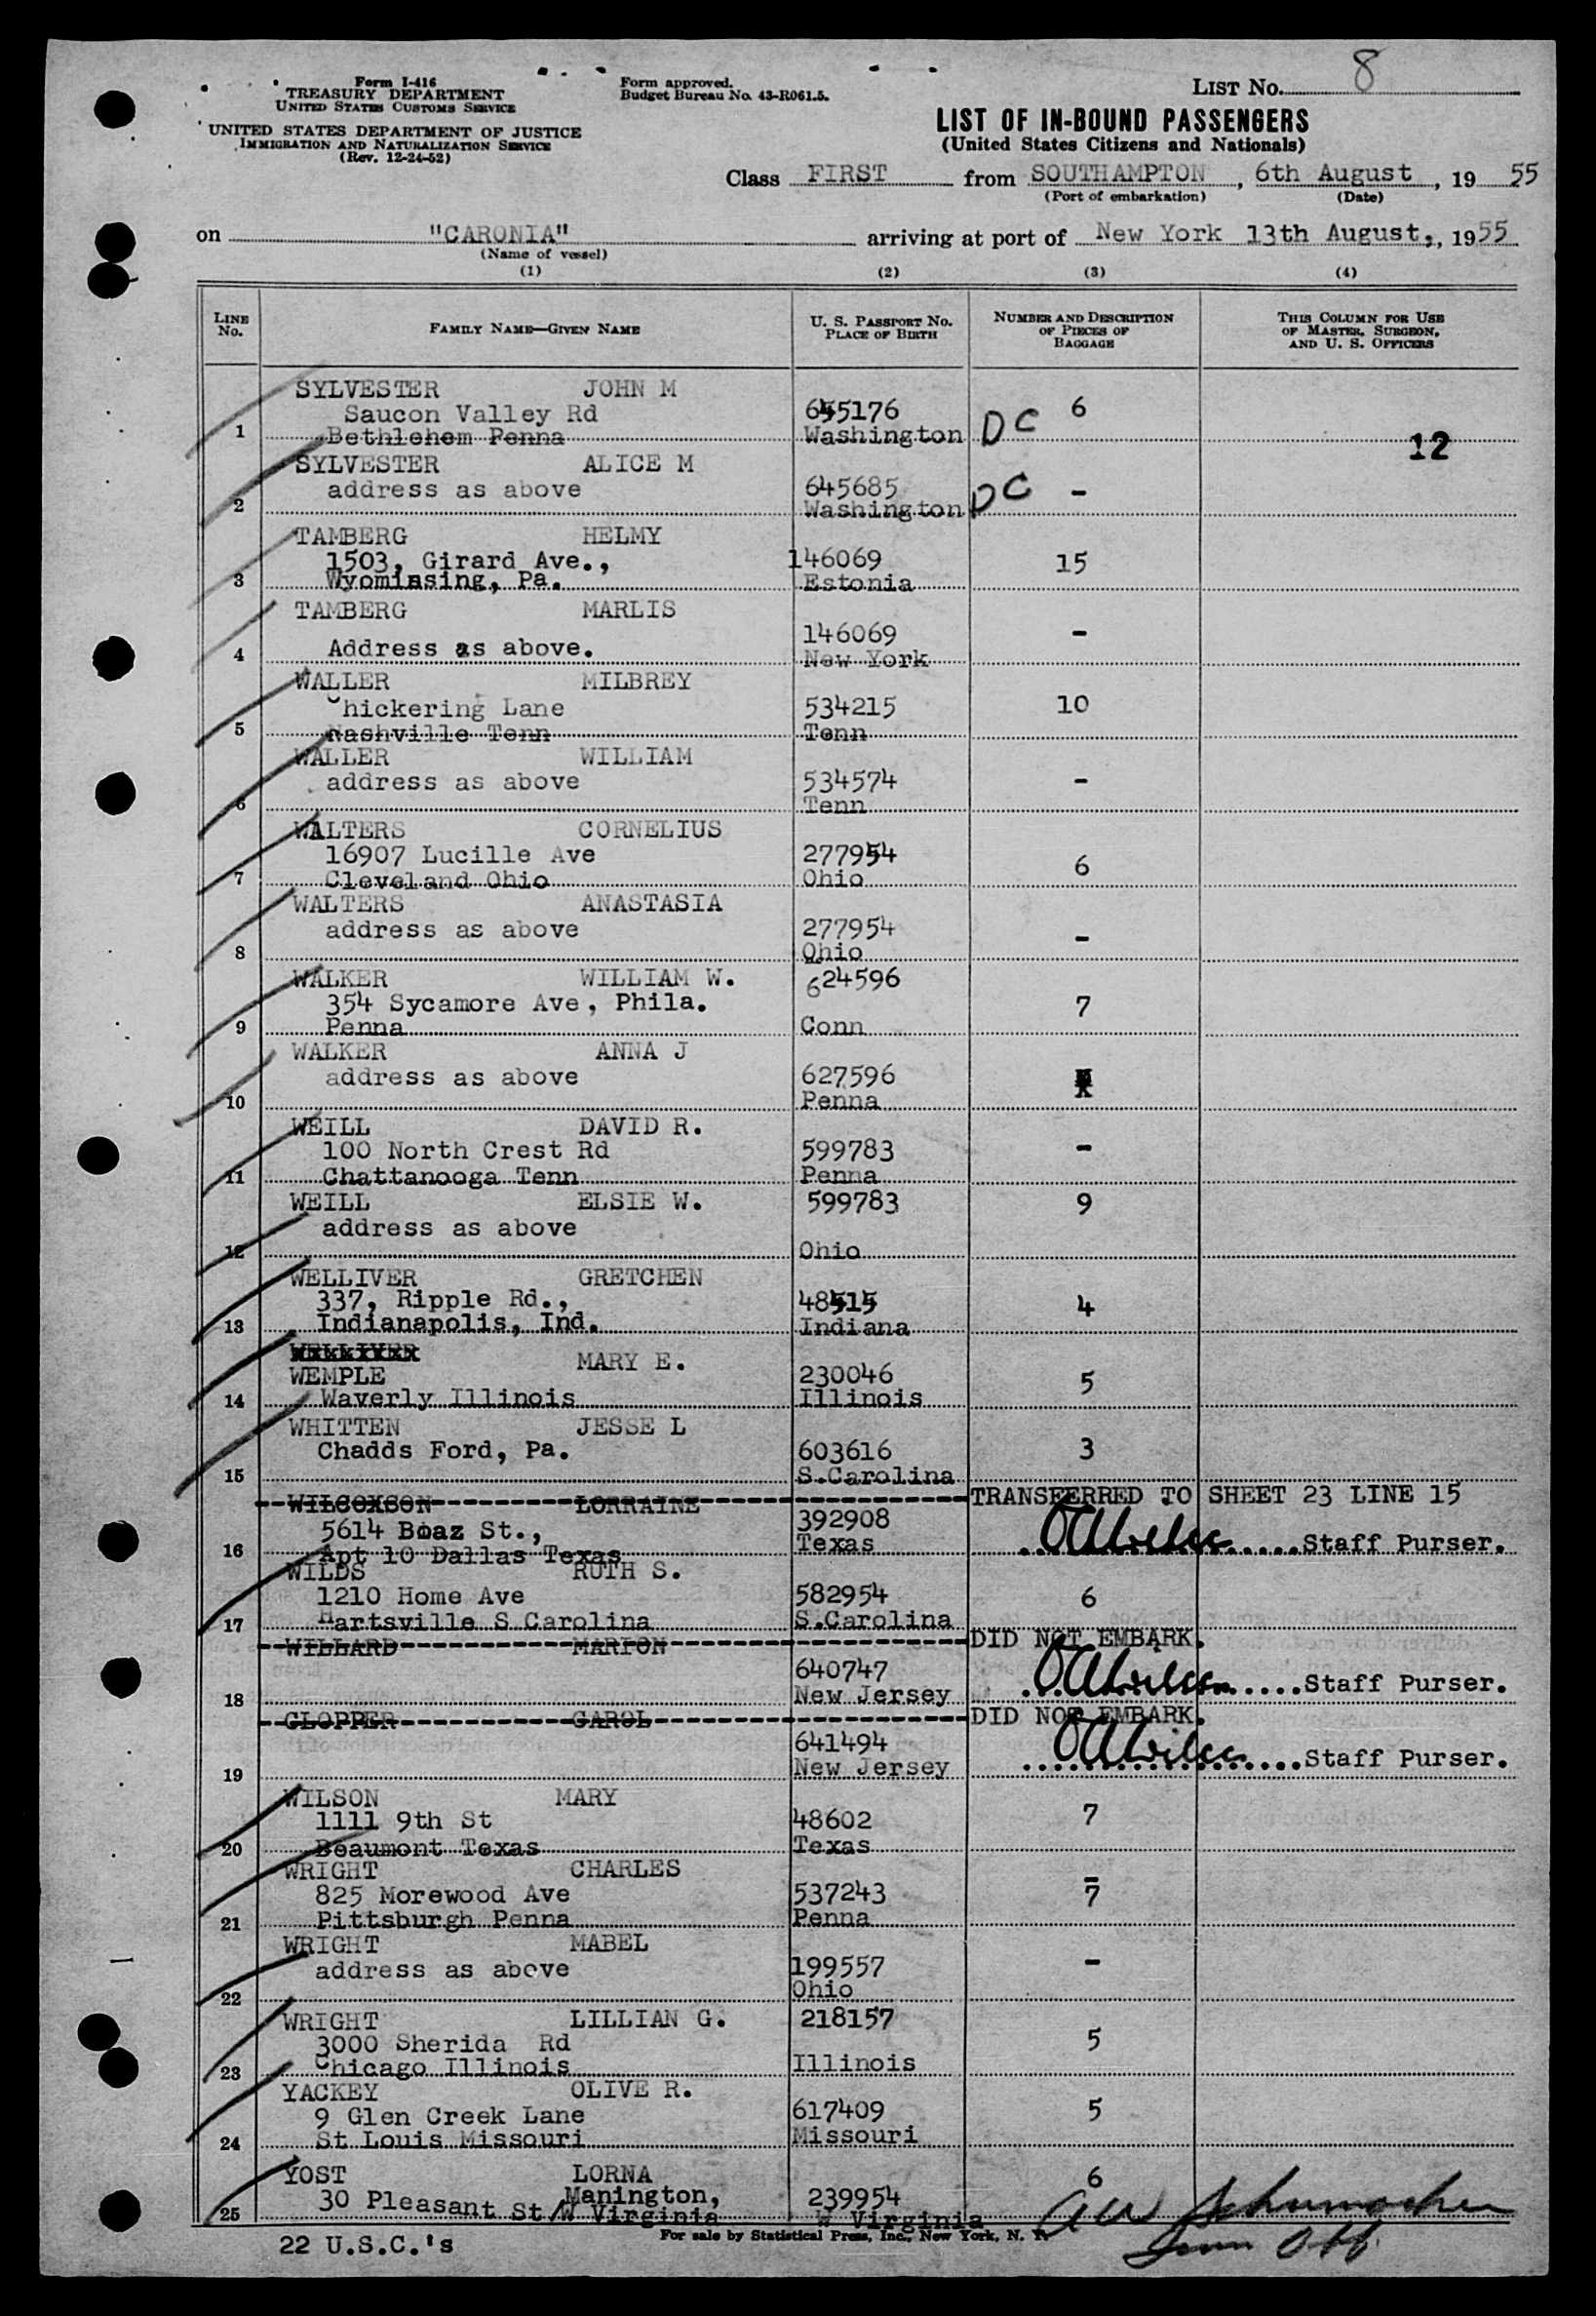 Form I-416
TREASURY DEPARTMENT
UNITED STATES CUSTOMS SERVICE
UNITED STATES DEPARTMENT OF JUSTICE
IMMIGRATION AND NATURALIZATION SERVICE
(Rev. 12-24-52)
Form approved.
Budget Bureau No. 43-R061.5.
LIST No. 8
LIST OF IN-BOUND PASSENGERS
(United States Citizens and Nationals)
Class FIRST from SOUTHAMPTON, 6th August, 19 55
(Port of embarkation) (Date)
on "CARONIA" arriving at port of New York 13th August, 1955
(Name of vessel)
(1) (2) (3) (4)
LINE No. FAMILY NAME—GIVEN NAME U. S. PASSPORT No. PLACE OF BIRTH NUMBER AND DESCRIPTION OF PIECES OF BAGGAGE THIS COLUMN FOR USE OF MASTER, SURGEON, AND U. S. OFFICERS
SYLVESTER JOHN M
Saucon Valley Rd 645176 6
1 Bethlehem Penna Washington DC 12
SYLVESTER ALICE M
address as above 645685 -
2 Washington DC
TAMBERG HELMY
1503, Girard Ave., 146069 15
3 Wyomissing, Pa. Estonia
TAMBERG MARLIS
146069 -
4 Address as above. New York
WALLER MILBREY
Chickering Lane 534215 10
5 Nashville Tenn Tenn
WALLER WILLIAM
address as above 534574 -
6 Tenn
WALTERS CORNELIUS
16907 Lucille Ave 277954 6
7 Cleveland Ohio Ohio
WALTERS ANASTASIA
address as above 277954 -
8 Ohio
WALKER WILLIAM W. 624596
354 Sycamore Ave, Phila. 7
9 Penna Conn
WALKER ANNA J
address as above 627596
10 Penna
WEILL DAVID R.
100 North Crest Rd 599783 -
11 Chattanooga Tenn Penna
WEILL ELSIE W. 599783 9
address as above
12 Ohio
WELLIVER GRETCHEN
337, Ripple Rd., 48515 4
13 Indianapolis, Ind. Indiana
WELLIVER MARY E.
WEMPLE 230046 5
14 Waverly Illinois Illinois
WHITTEN JESSE L
Chadds Ford, Pa. 603616 3
15 S.Carolina
WILCOXSON LORRAINE TRANSFERRED TO SHEET 23 LINE 15
5614 Boaz St., 392908
16 Apt 10 Dallas Texas Texas Staff Purser.
WILDS RUTH S.
1210 Home Ave 582954 6
17 Hartsville S Carolina S.Carolina
WILLARD MARION DID NOT EMBARK.
640747
18 New Jersey Staff Purser.
CLOPPER CAROL DID NOT EMBARK.
641494
19 New Jersey Staff Purser.
WILSON MARY
1111 9th St 48602 7
20 Beaumont Texas Texas
WRIGHT CHARLES
825 Morewood Ave 537243 7
21 Pittsburgh Penna Penna
WRIGHT MABEL
address as above 199557 -
22 Ohio
WRIGHT LILLIAN G. 218157
3000 Sherida Rd 5
23 Chicago Illinois Illinois
YACKEY OLIVE R.
9 Glen Creek Lane 617409 5
24 St Louis Missouri Missouri
YOST LORNA 6
30 Pleasant St Manington, 239954
25 W Virginia W Virginia
A W Schumacher
Imm Off.
22 U.S.C.'s
For sale by Statistical Press, Inc., New York, N. Y.